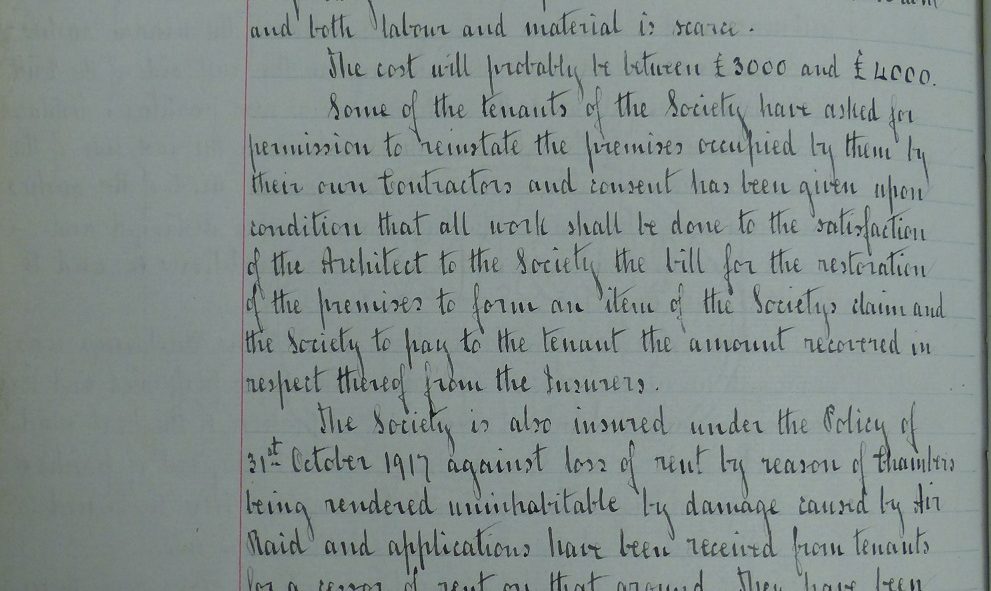 and both labour and material is scarce.
The cost will probably be between £3000 and £4000.
Some of the tenants of the Society have asked for
permission to reinstate the premises occupied by them by
their own Contractors and consent has been given upon
condition that all work shall be done to the satisfaction
of the Architect to the Society the bill for the restoration
of the premises to form an item of the Societys claim and
the Society to pay to the tenant the amount recovered in
respect thereof from the Insurers.
The Society is also insured under the Policy of
31st October 1917 against loss of rent by reason of Chambers
being rendered uninhabitable by damage caused by Air
Raid and applications have been received from tenants
for a cesser of rent on that ground. They have been